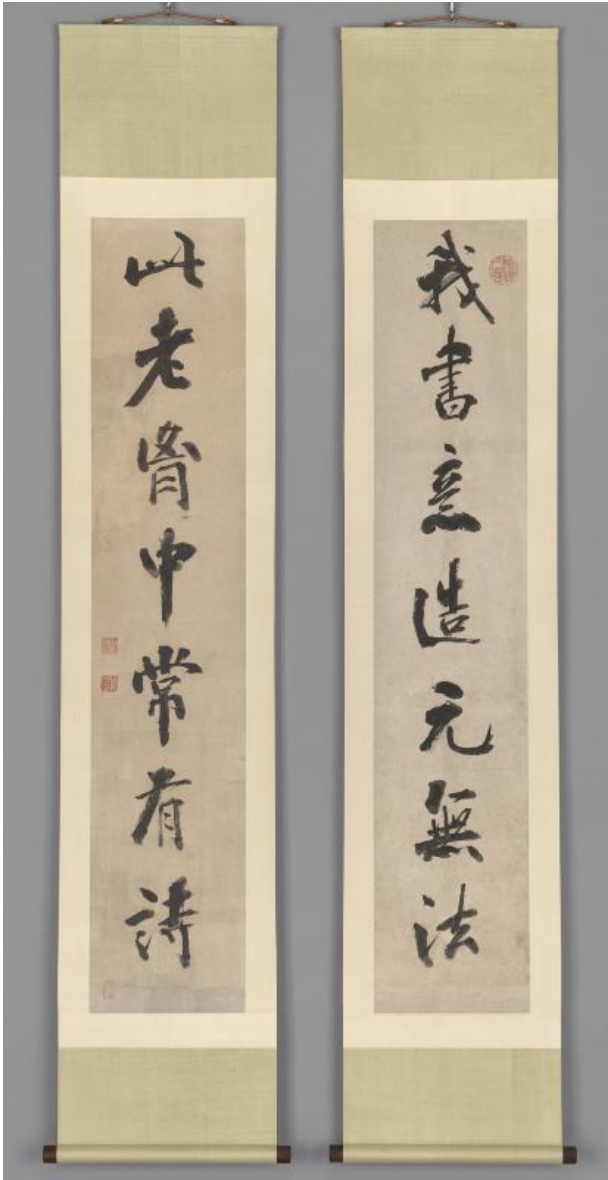 我書意造元無法
此老胷中常有詩